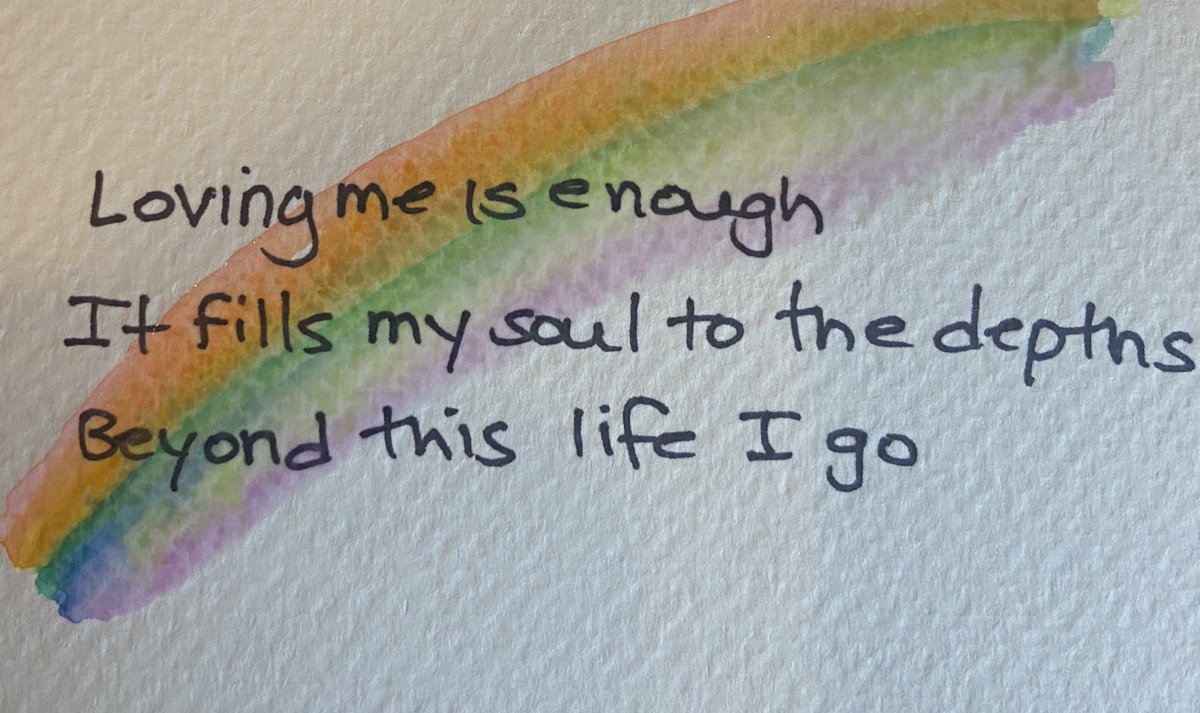 Loving me is enough
It fills my soul to the depths
Beyond this life I go